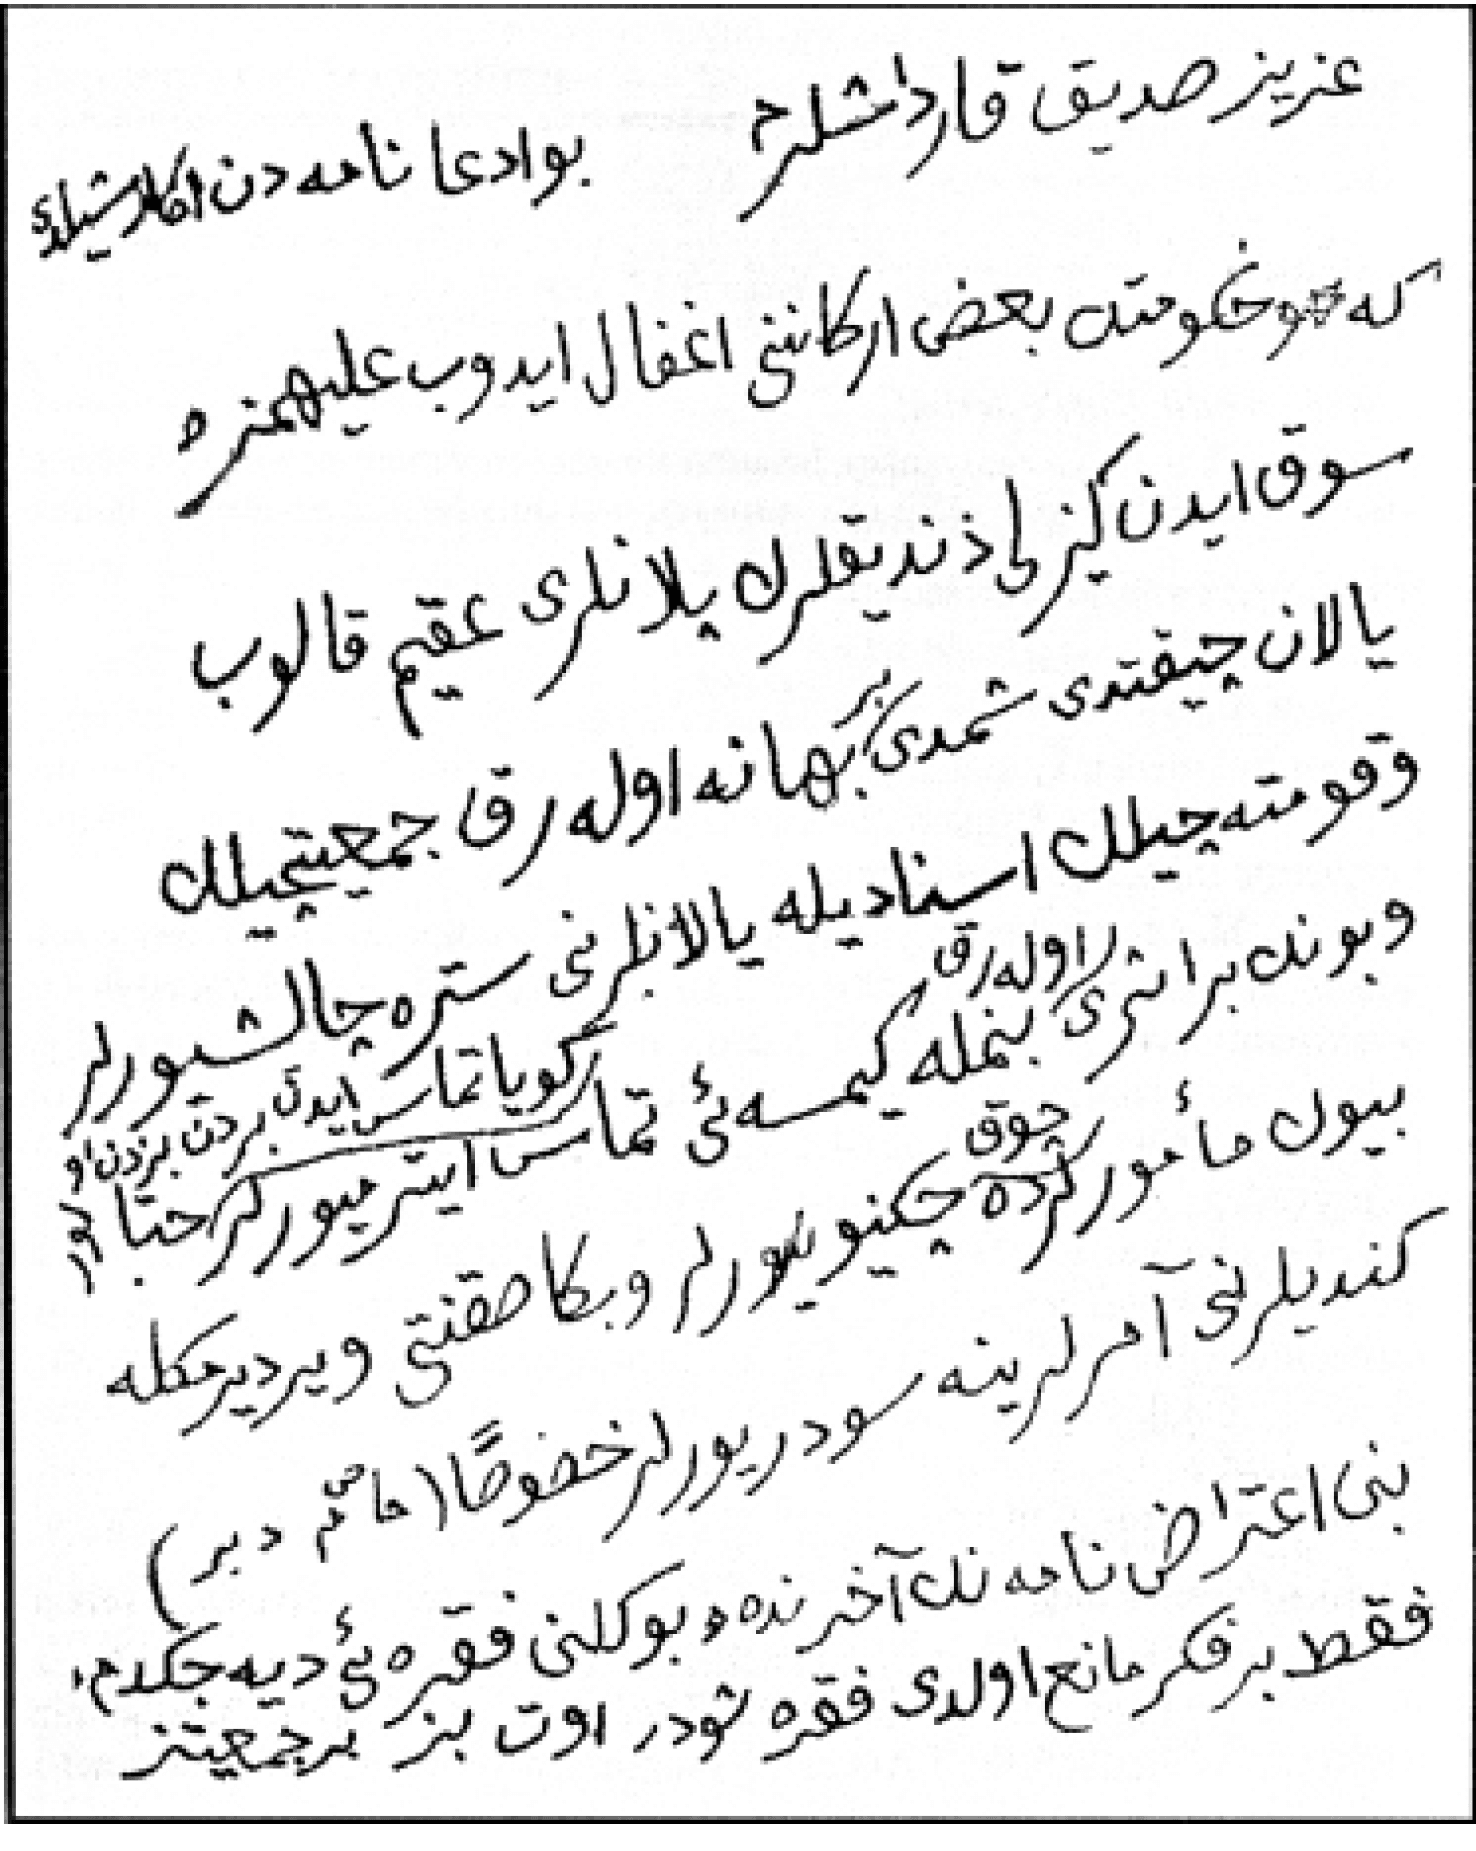 عزیز صدیق قارداشلرم
بو ادعا نامه دن اکلاشیلدی
که حکومتك بعض ارکاننی اغفال ایدوب علیهمزه
سوق ایدن کیزلی زندیقلرك پلانلری عقیم قالوب
یالان چیقتدی شمدی بر بهانه اوله رق جمعیتچیلك
و قومته جیلك اسنادیله یالانلرنی ستره چالشیورلر
و بونك بر اثری اوله رق بنمله کیمسه ئی تماس ایتدرمیورلر
کویا تماس ایدن بردن بزدن اولور
حتا بیوك مأمورلرده چوق چکنیورلر و بکا صقنتی ویردیرمکله
کندیلرنی آمرلرینه سودریورلر خصوصًا (
)
بن اعتراض نامه نك آخرنده بو کلن فقره ئی دیه جکدم
فقط بر فکر مانع اولدی فقره شودر اوت بز بر جمعیتز